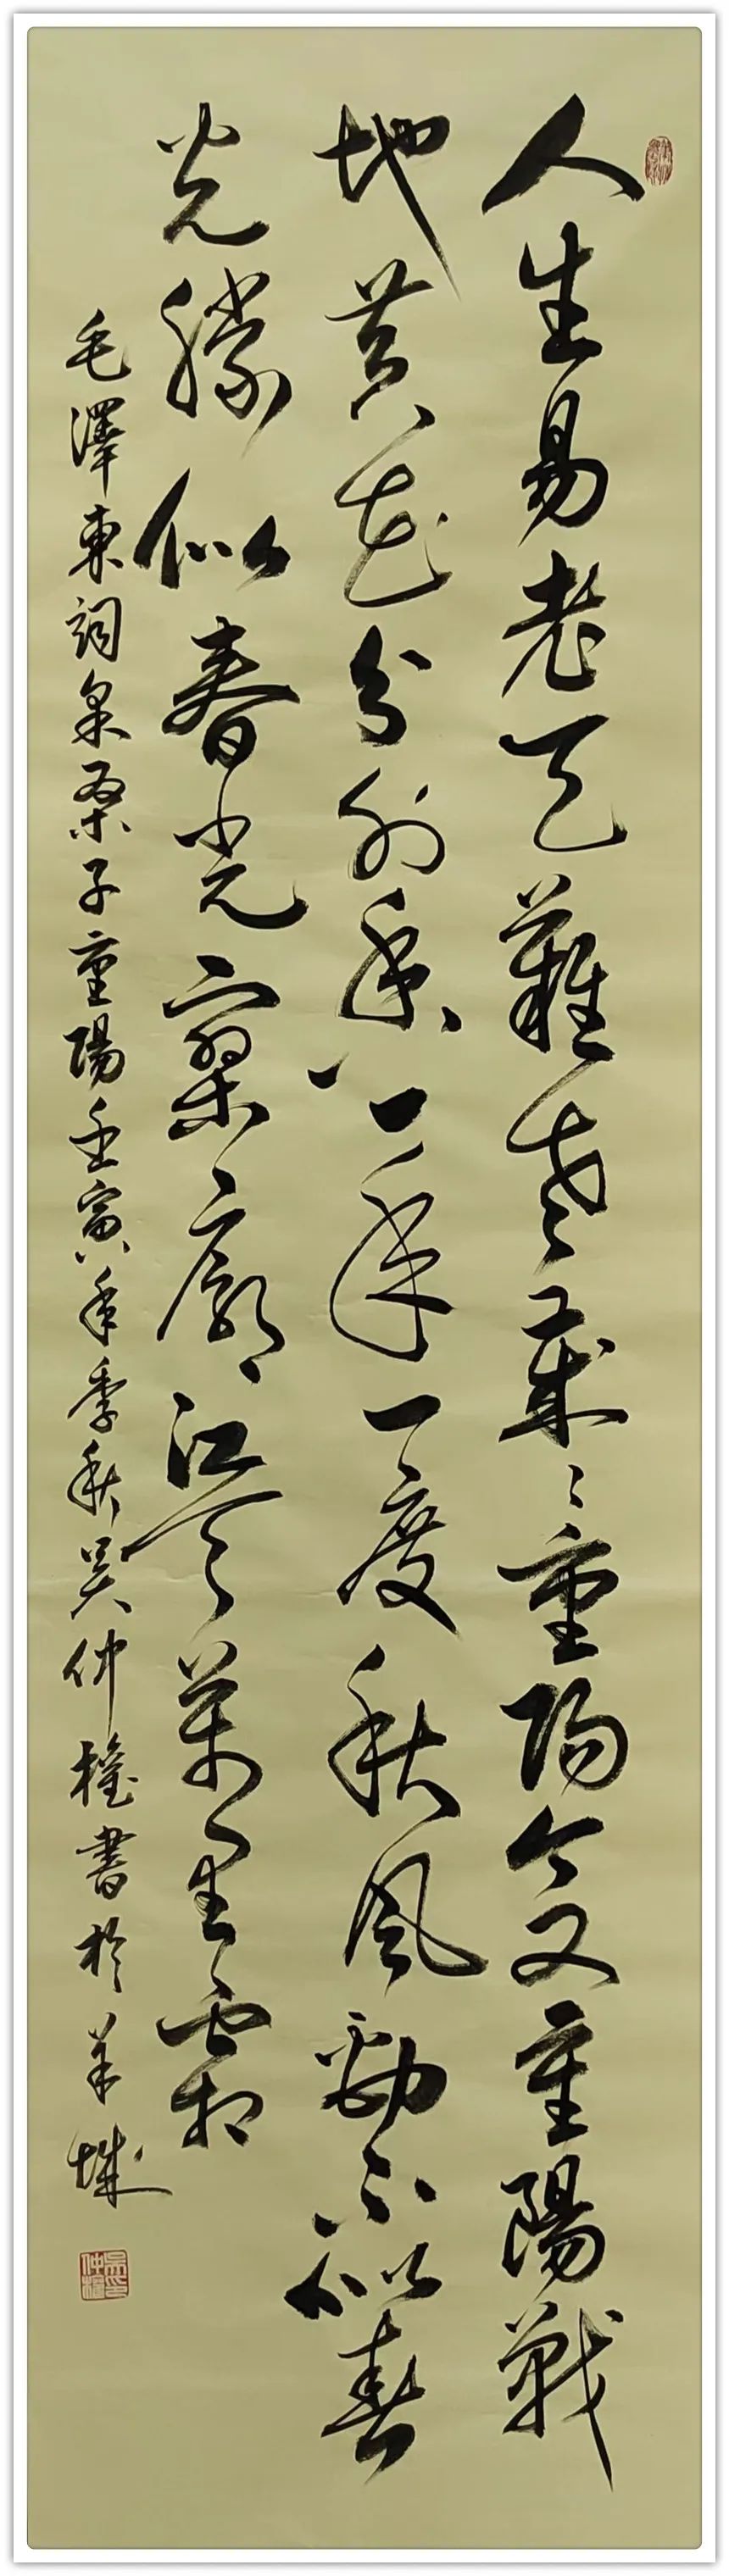 人生易老天難老歲々重阳今又重陽戰
地黄花分外香一年一度秋風勁不似春
光勝似春光寥廓江天萬里霜
毛澤東詞采桑子重陽壬寅年季秋吴仲權書於羊城